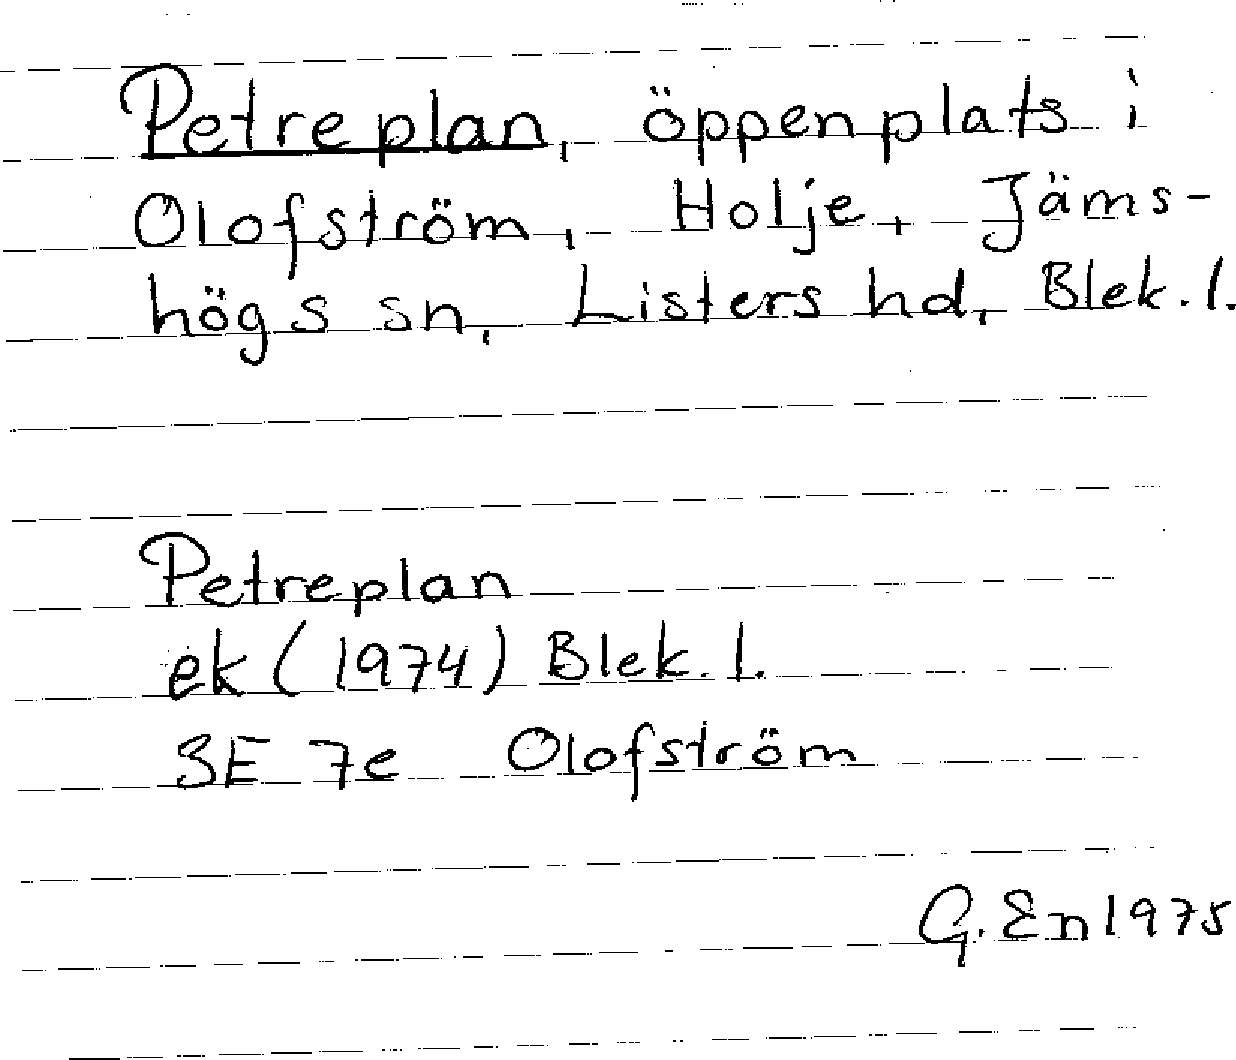 Petreplan, öppen plats i
Olofström, Holje, Jäms-
högs sn, Listers hd, Blek. l.
Petreplan
ek (1974) Blek. l.
3E 7e Olofström
G. En 1975